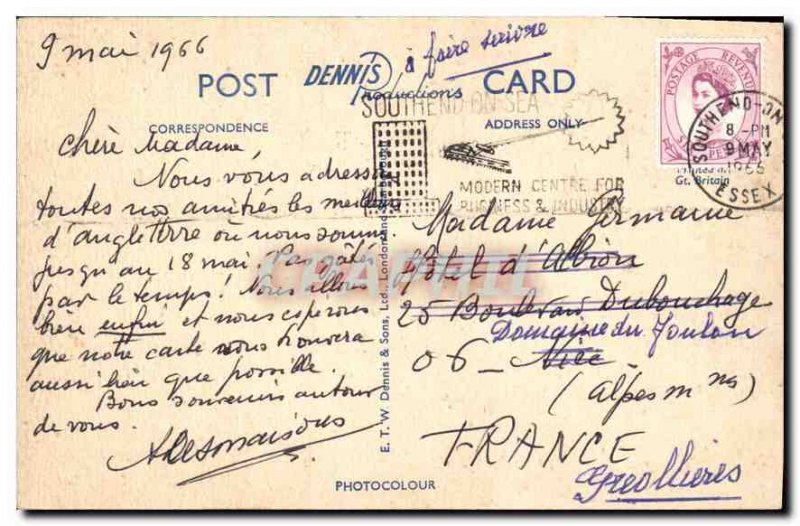 9 mai 1966
à faire suivre
POST DENNIS Productions CARD
CORRESPONDENCE
ADDRESS ONLY
SOUTHEND ON SEA
MODERN CENTRE FOR
BUSINESS & INDUSTRY
POSTAGE REVENUE
SOUTHEND-ON
8 - PM
9 MAY
1966
ESSEX
Gt. Britain
Chère Madame,
Nous vous adressons
toutes nos amitiés les meilleures
d'angleterre où nous sommes
jusqu'au 18 mai. Pas gâtés
par le temps! Nous allons
bien enfin et nous espérons
que notre carte vous trouvera
aussi bien que possible.
Bons souvenirs autour
de vous.
ADesmaisons
Madame Germaine
Hôtel d'Albion
25 Boulevard Dubouchage
Domaine du Foulon
06 - Nice
(Alpes mmes)
FRANCE
Greollières
E. T. W. Dennis & Sons, Ltd., London and Scarborough
PHOTOCOLOUR